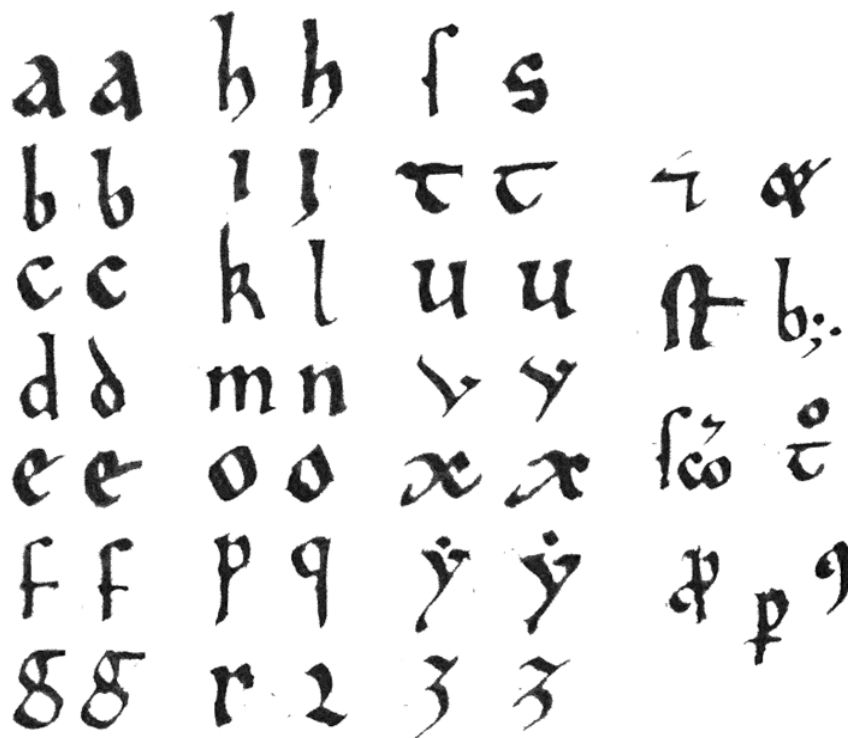 a a h h ſ s
b b ı ȷ t t ⁊ &
c c k l u u ſt b;.
d d m n v v
e e o o x x ſcō tͦ
f f p q ẏ ẏ ꝓ ꝑ ꝰ
g g r ꝛ z z